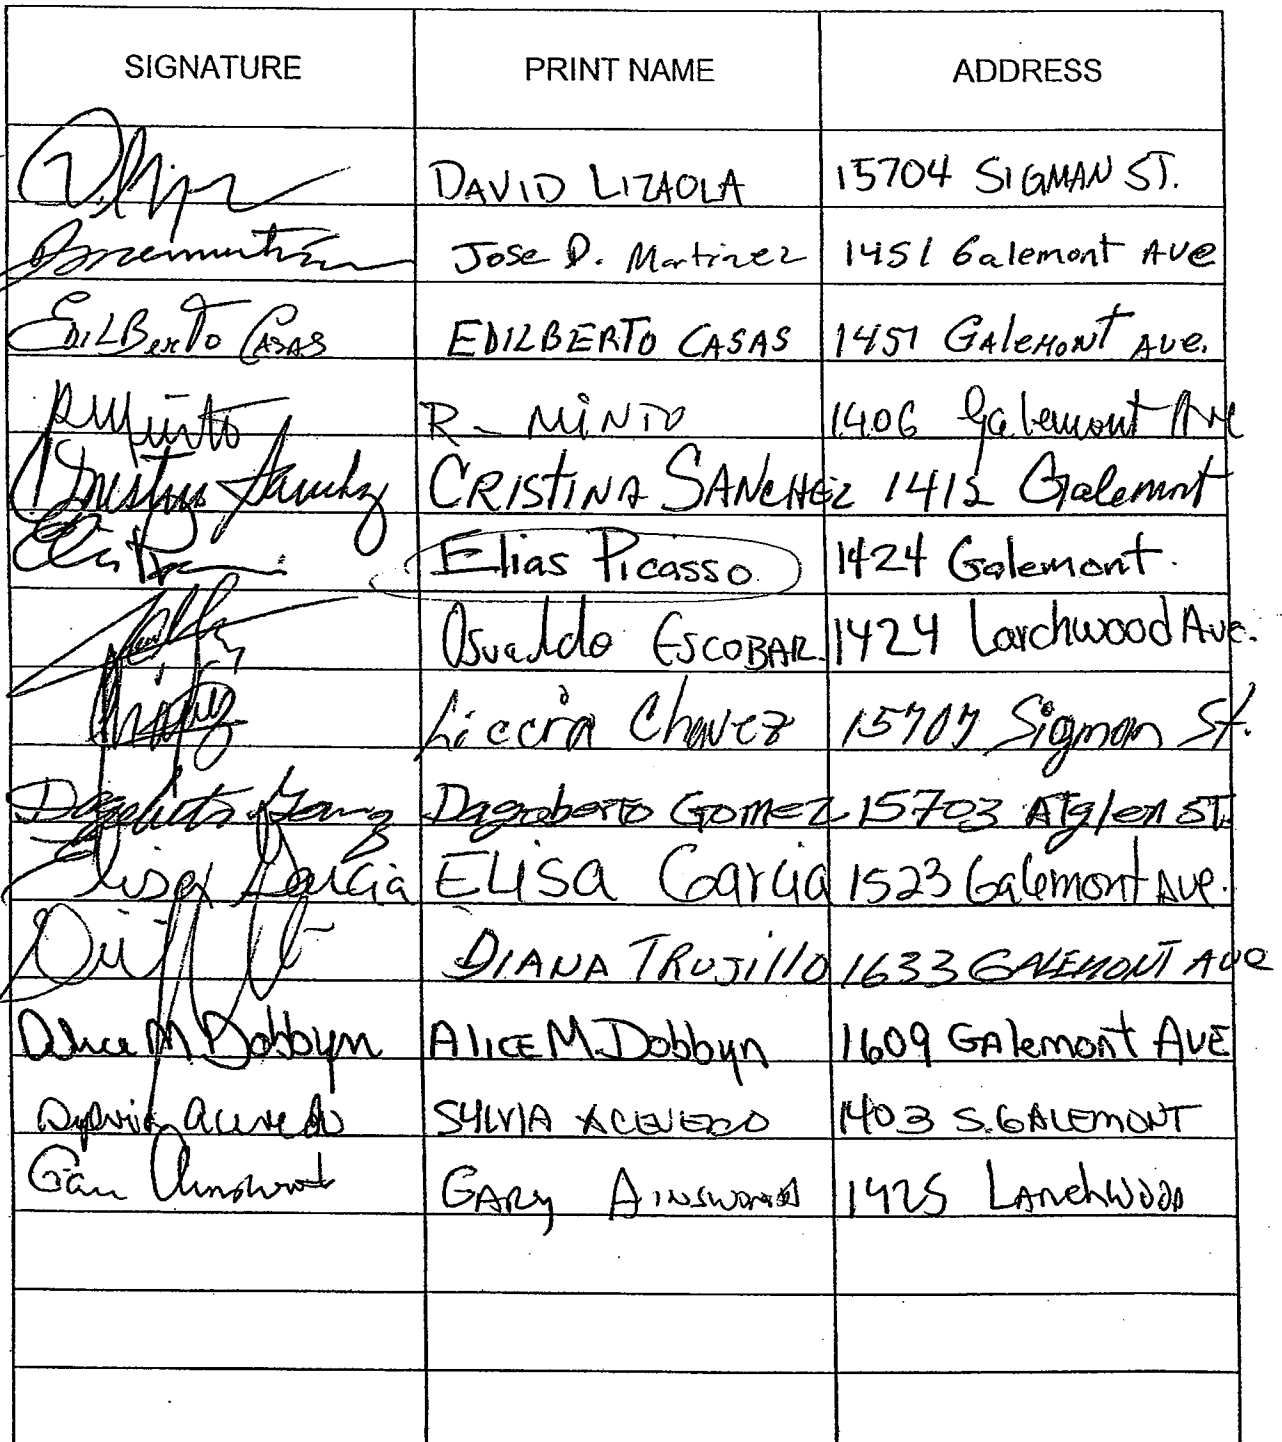 SIGNATURE PRINT NAME ADDRESS
DAVID LIZAOLA 15704 SIGMAN ST.
Jose D. Martinez 1451 Galemont AVE
EDILBerTo CASAS EDILBERTO CASAS 1451 GALEMONT AVE.
RMinto R. MINTO 1406 Galemont Ave
Cristina Sanchez CRISTINA SANCHEZ 1412 Galemont
Elias Picasso 1424 Galemont.
Osvaldo ESCOBAR. 1424 Larchwood Ave.
Chavez 15707 Sigman St.
Dagoberto Gomez Dagoberto GOMEZ 15703 Atglen ST.
Elisa Garcia ELISA Garcia 1523 Galemont AVE.
DIANA TRUJIllO 1633 GALEMONT AVE
Alice M Dobbyn ALICE M. Dobbyn 1609 GAlemont AVE
Sylvia Acevedo SYLVIA ACEVEDO 1403 S. GALEMONT
Gary Ainsworth GARY AINSWORTH 1425 LARCHWOOD